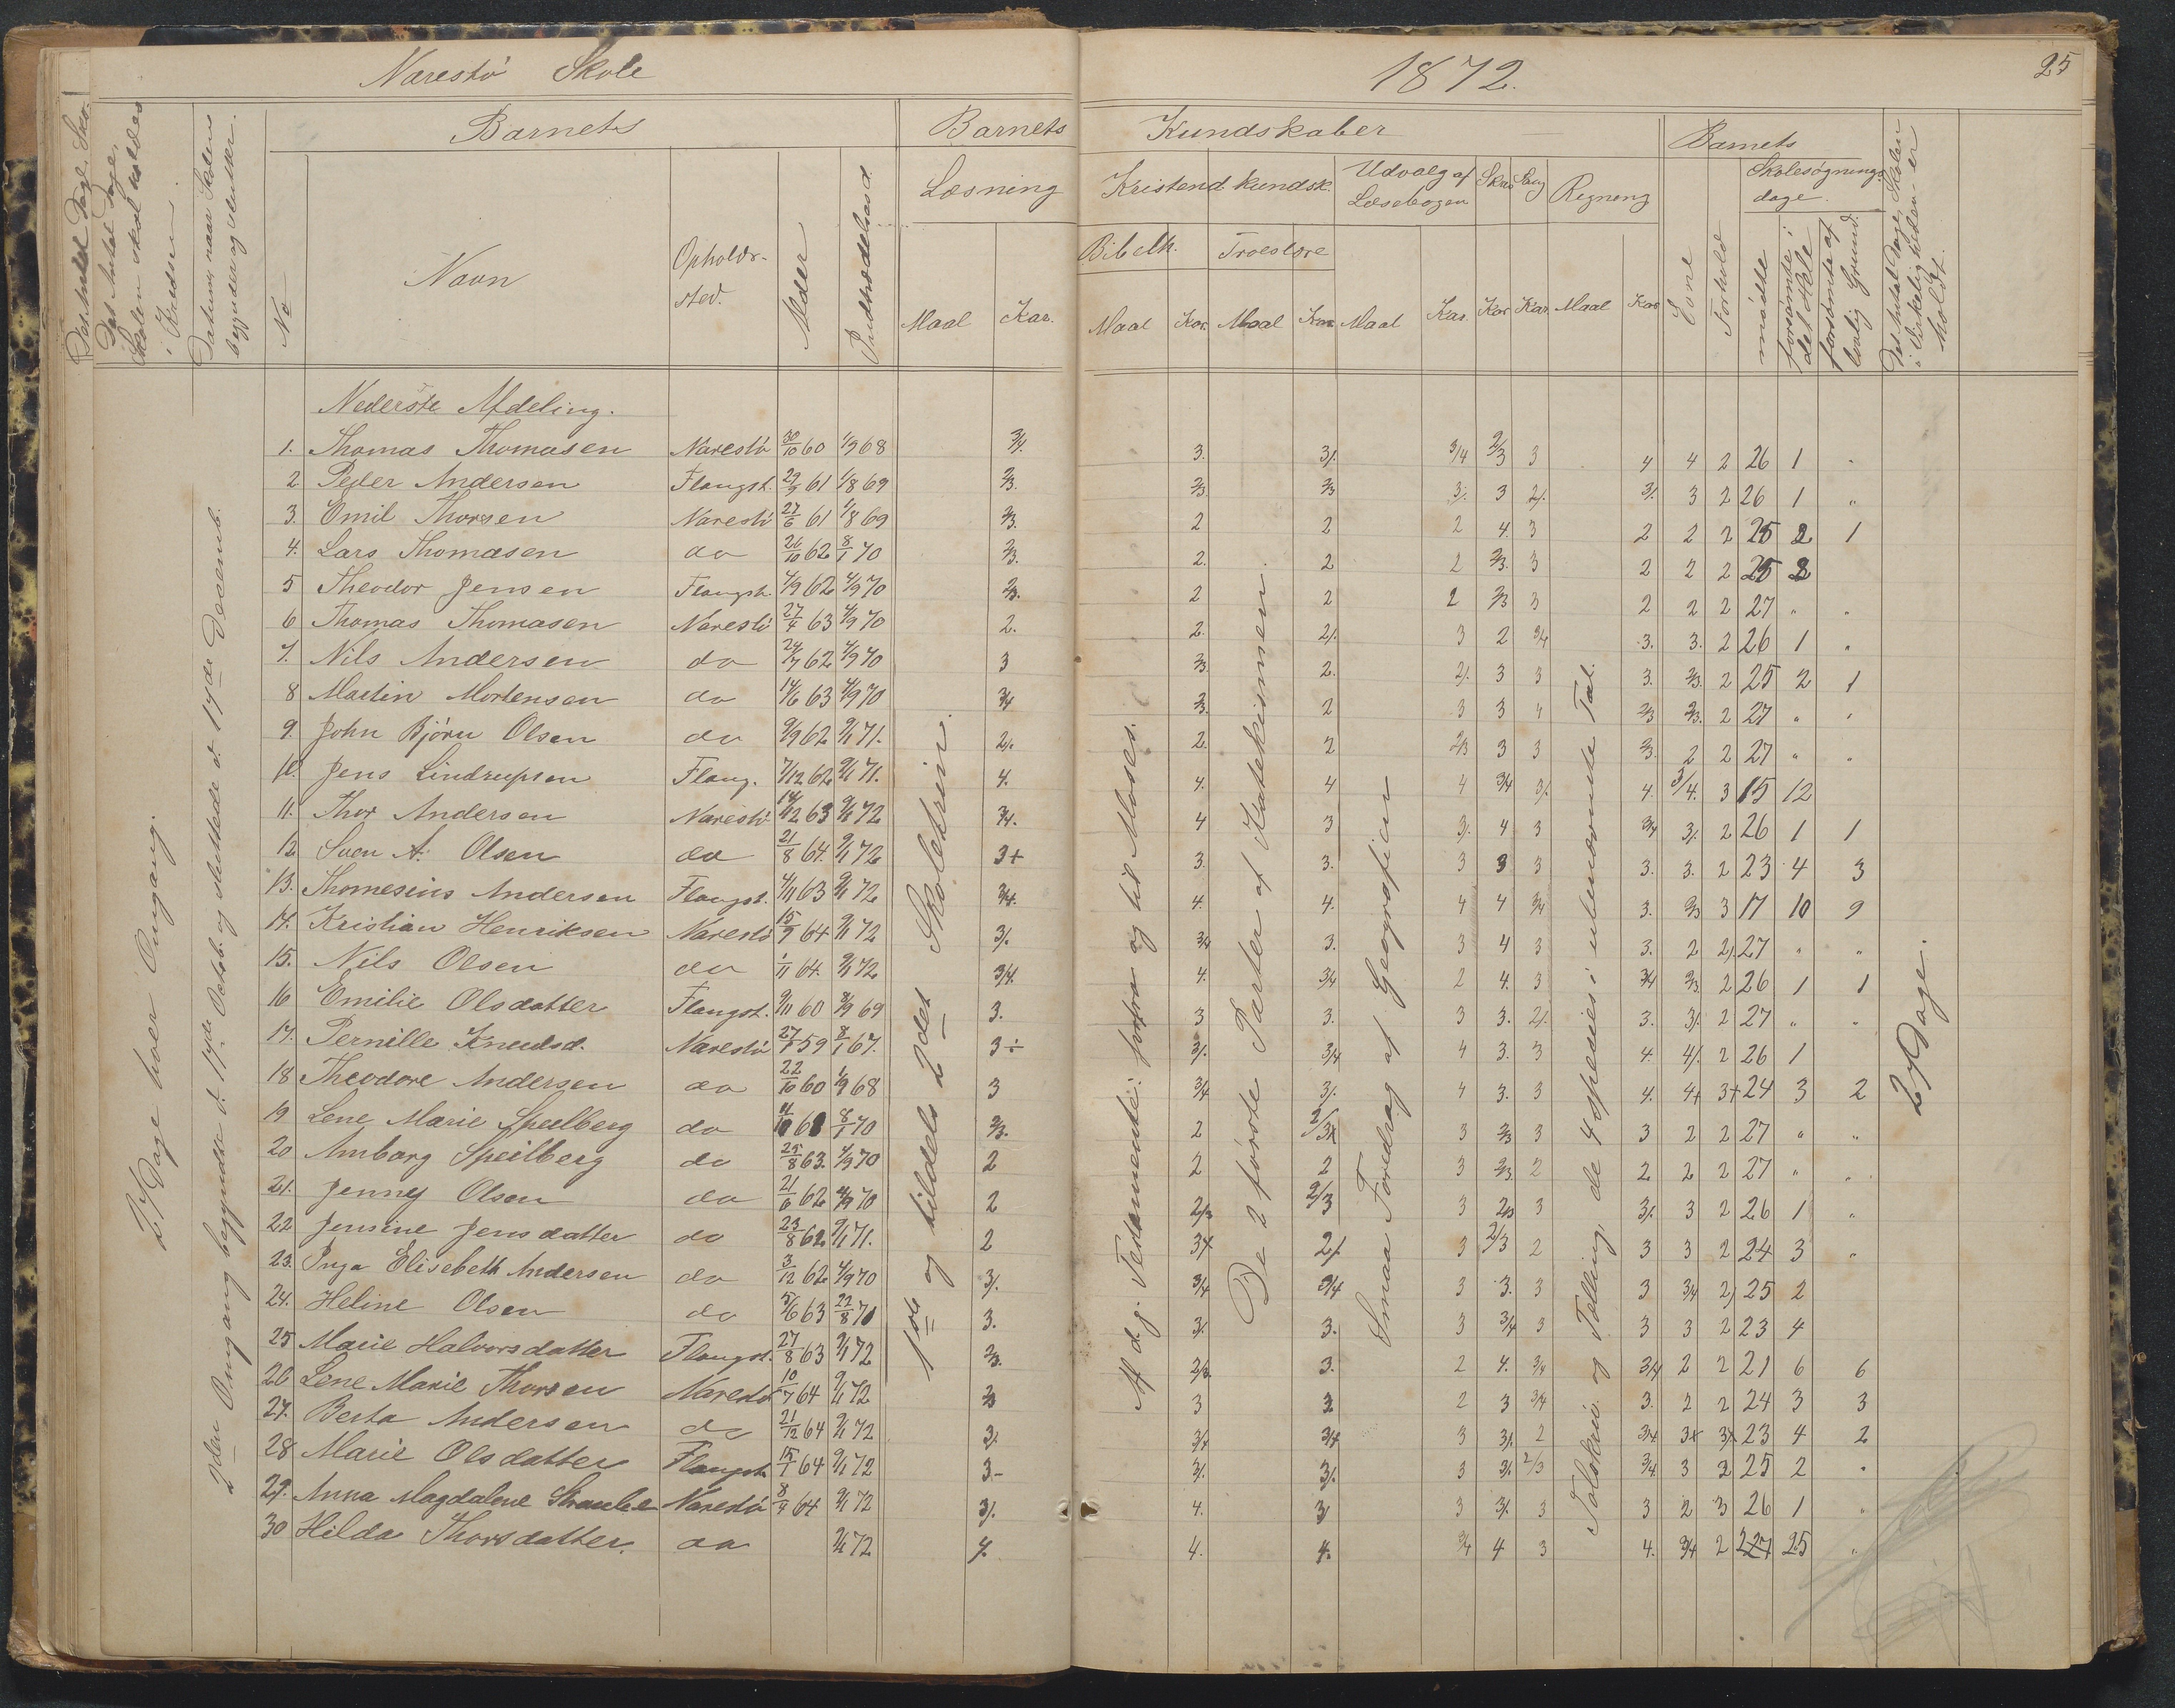 Narestö Skole
1872.
25
Barnets
Barnets Kundskaber
Barnets
Læsning
Kristend. kundsk.
Udvalg af Læsebogen
Skriv
Sang
Regning
Skolesøgnings dage.
Bibelh.
Troeslære
No
Navn
Opholds-
sted.
Alder
Indtrædelsesd.
Maal
Kar.
Maal
Kar.
Maal
Kar.
Maal
Kar.
Kar.
Kar.
Maal
Kar.
Evne
Forhold
mødte
forsømte i det Hele
forsømte af lovlig Grund.
Det Antal Dage Skolen i Virkeligheden er holdt.
Det Antal Dage, Skolen skal holdes i Kredsen.
Datum, naar Skolens begynder og slutter.
27 Dage hver Omgang.
2den Omgang begyndte d. 17de Octob. og sluttede d. 17de Decemb.
1ste og tildels 2det Skoletrin.
Af d. g. Testamente: forfra og til Moses.
De 2 første Parter af Katekismen.
Smaa Foredrag af Geografien
Talskriv. og Tælling, de 4 species i ubenævnte Tal.
27 Dage.
Nederste Afdeling.
1. Thomas Thomasen Narestö 30/10 60 1/9 68 3/4. 3. 3/. 3/4 2/3 3 4 4 2 26 1 "
2 Peder Andersen Flangst. 29/9 61 1/8 69 2/3. 2/3. 2/3 3/. 3 2/. 3/. 3 2 26 1 "
3. Emil Thorsen Narestö 27/6 61 1/8 69 2/3. 2 2 2 4. 3 2 2 2 25 2 1
4. Lars Thomasen do 26/10 62 8/1 70 2/3. 2. 2 2 2/3. 3 2 2 2 25 2
5 Theodor Jensen Flangst. 4/9 62 4/9 70 2/3. 2 2 2 2/3 3 2 2 2 27 " "
6 Thomas Thomasen Narestö 27/4 63 4/9 70 2. 2. 2/. 3 2 3/4 3. 3. 2 26 1 "
7. Nils Andersen do 24/7 62 4/9 70 3 2/3. 2. 2/. 3 3 3. 2/3. 2 25 2 1
8 Martin Mortensen do 14/6 63 4/9 70 3/4 2/3. 2 3 3 4 2/3 2/3. 2 27 " "
9. John Björn Olsen do 9/9 62 9/1 71. 2/. 2. 2 2/3 3 3 2/3. 2 2 27 " "
10. Jens Lindrupsen Flang. 7/12 62 9/1 71. 4. 4. 4 4 3/4 3/. 4. 3/4. 3 15 12
11. Thor Andersen Narestö 14/12 63 9/1 72 3/4. 4 3 3/. 4 3 3/4 3/. 2 26 1 1
12 Sven A. Olsen do 21/8 64. 9/1 72 3+ 3. 3. 3 3 3 3. 3. 2 23 4 3
13. Thomesius Andersen Flangst. 4/11 63 9/1 72 3/4. 4. 4. 4 4 3/4 3. 2/3 3 17 10 9
14. Kristian Henriksen Narestö 15/9 64 9/1 72 3/. 3/4 3. 3 4 3 3. 2 2/. 27 " "
15. Nils Olsen do 1/11 64. 9/1 72 3/4. 4. 3/4 2 4. 3 3/4 2/3. 2 26 1 1
16 Emilie Olsdatter Flangst. 9/11 60 8/9 69 3. 3 3. 3 3. 2/. 3. 3/. 2 27 " "
17. Pernille Knudsd. Narestö 27/1 59 8/1 67. 3÷ 3/. 3/4 4 3. 3 4. 4/. 2 26 1
18 Theodore Andersen do 22/10 60 1/9 68 3 3/4 3/. 4 3. 3 4. 4+ 3+ 24 3 2
19 Lene Marie Speilberg do 8/1 70 2/3. 2 3 2/3 3 3 2 2 27 " "
20 Amborg Speilberg do 25/8 63. 4/9 70 2 2 2 3 2/3 2 2 2 2 27 " "
21. Jenney Olsen do 21/6 62 4/9 70 2 2/3 2/3 3 2/3 3 3/. 3 2 26 1 "
22 Jensine Jensdatter do 23/8 62 9/1 71. 2 2/. 3 2/3 2 3 3 2 24 3 "
23. Inga Elisebeth Andersen do 3/12 62 4/9 70 3/. 3/4 3/4 3 3. 3 3 3/4 2/ 25 2
24. Heline Olsen do 5/6 63 22/8 70 3. 3/. 3. 3 3/4 3 3 3 2 23 4
25 Marie Halvorsdatter Flangst. 27/8 63 9/1 72 2/3. 2/3. 3. 2 4. 3/4 3/4 2 2 21 6 6
26 Lene Marie Thorsen Narestö 10/7 64 9/1 72 2/3 3 3 2 3 3/4 3. 2 2 24 3 3
27. Berta Andersen do 21/12 64 9/1 72 3/. 3/4 3/4 3 3/. 2 3/4 3+ 23 4 2
28 Marie Olsdatter Flangst. 15/1 64 9/1 72 3- 3/. 3/. 3 3/. 2/3 3/4. 3 2 25 2 "
29. Anna Magdalene Narestö 8/4 64 9/1 72 3/. 4. 3/ 3 3/. 3 3 2 3 26 1 "
30 Hilda Thorsdatter. do 72 4. 4. 4. 3/4 4 3 4. 3/4 2 25 "